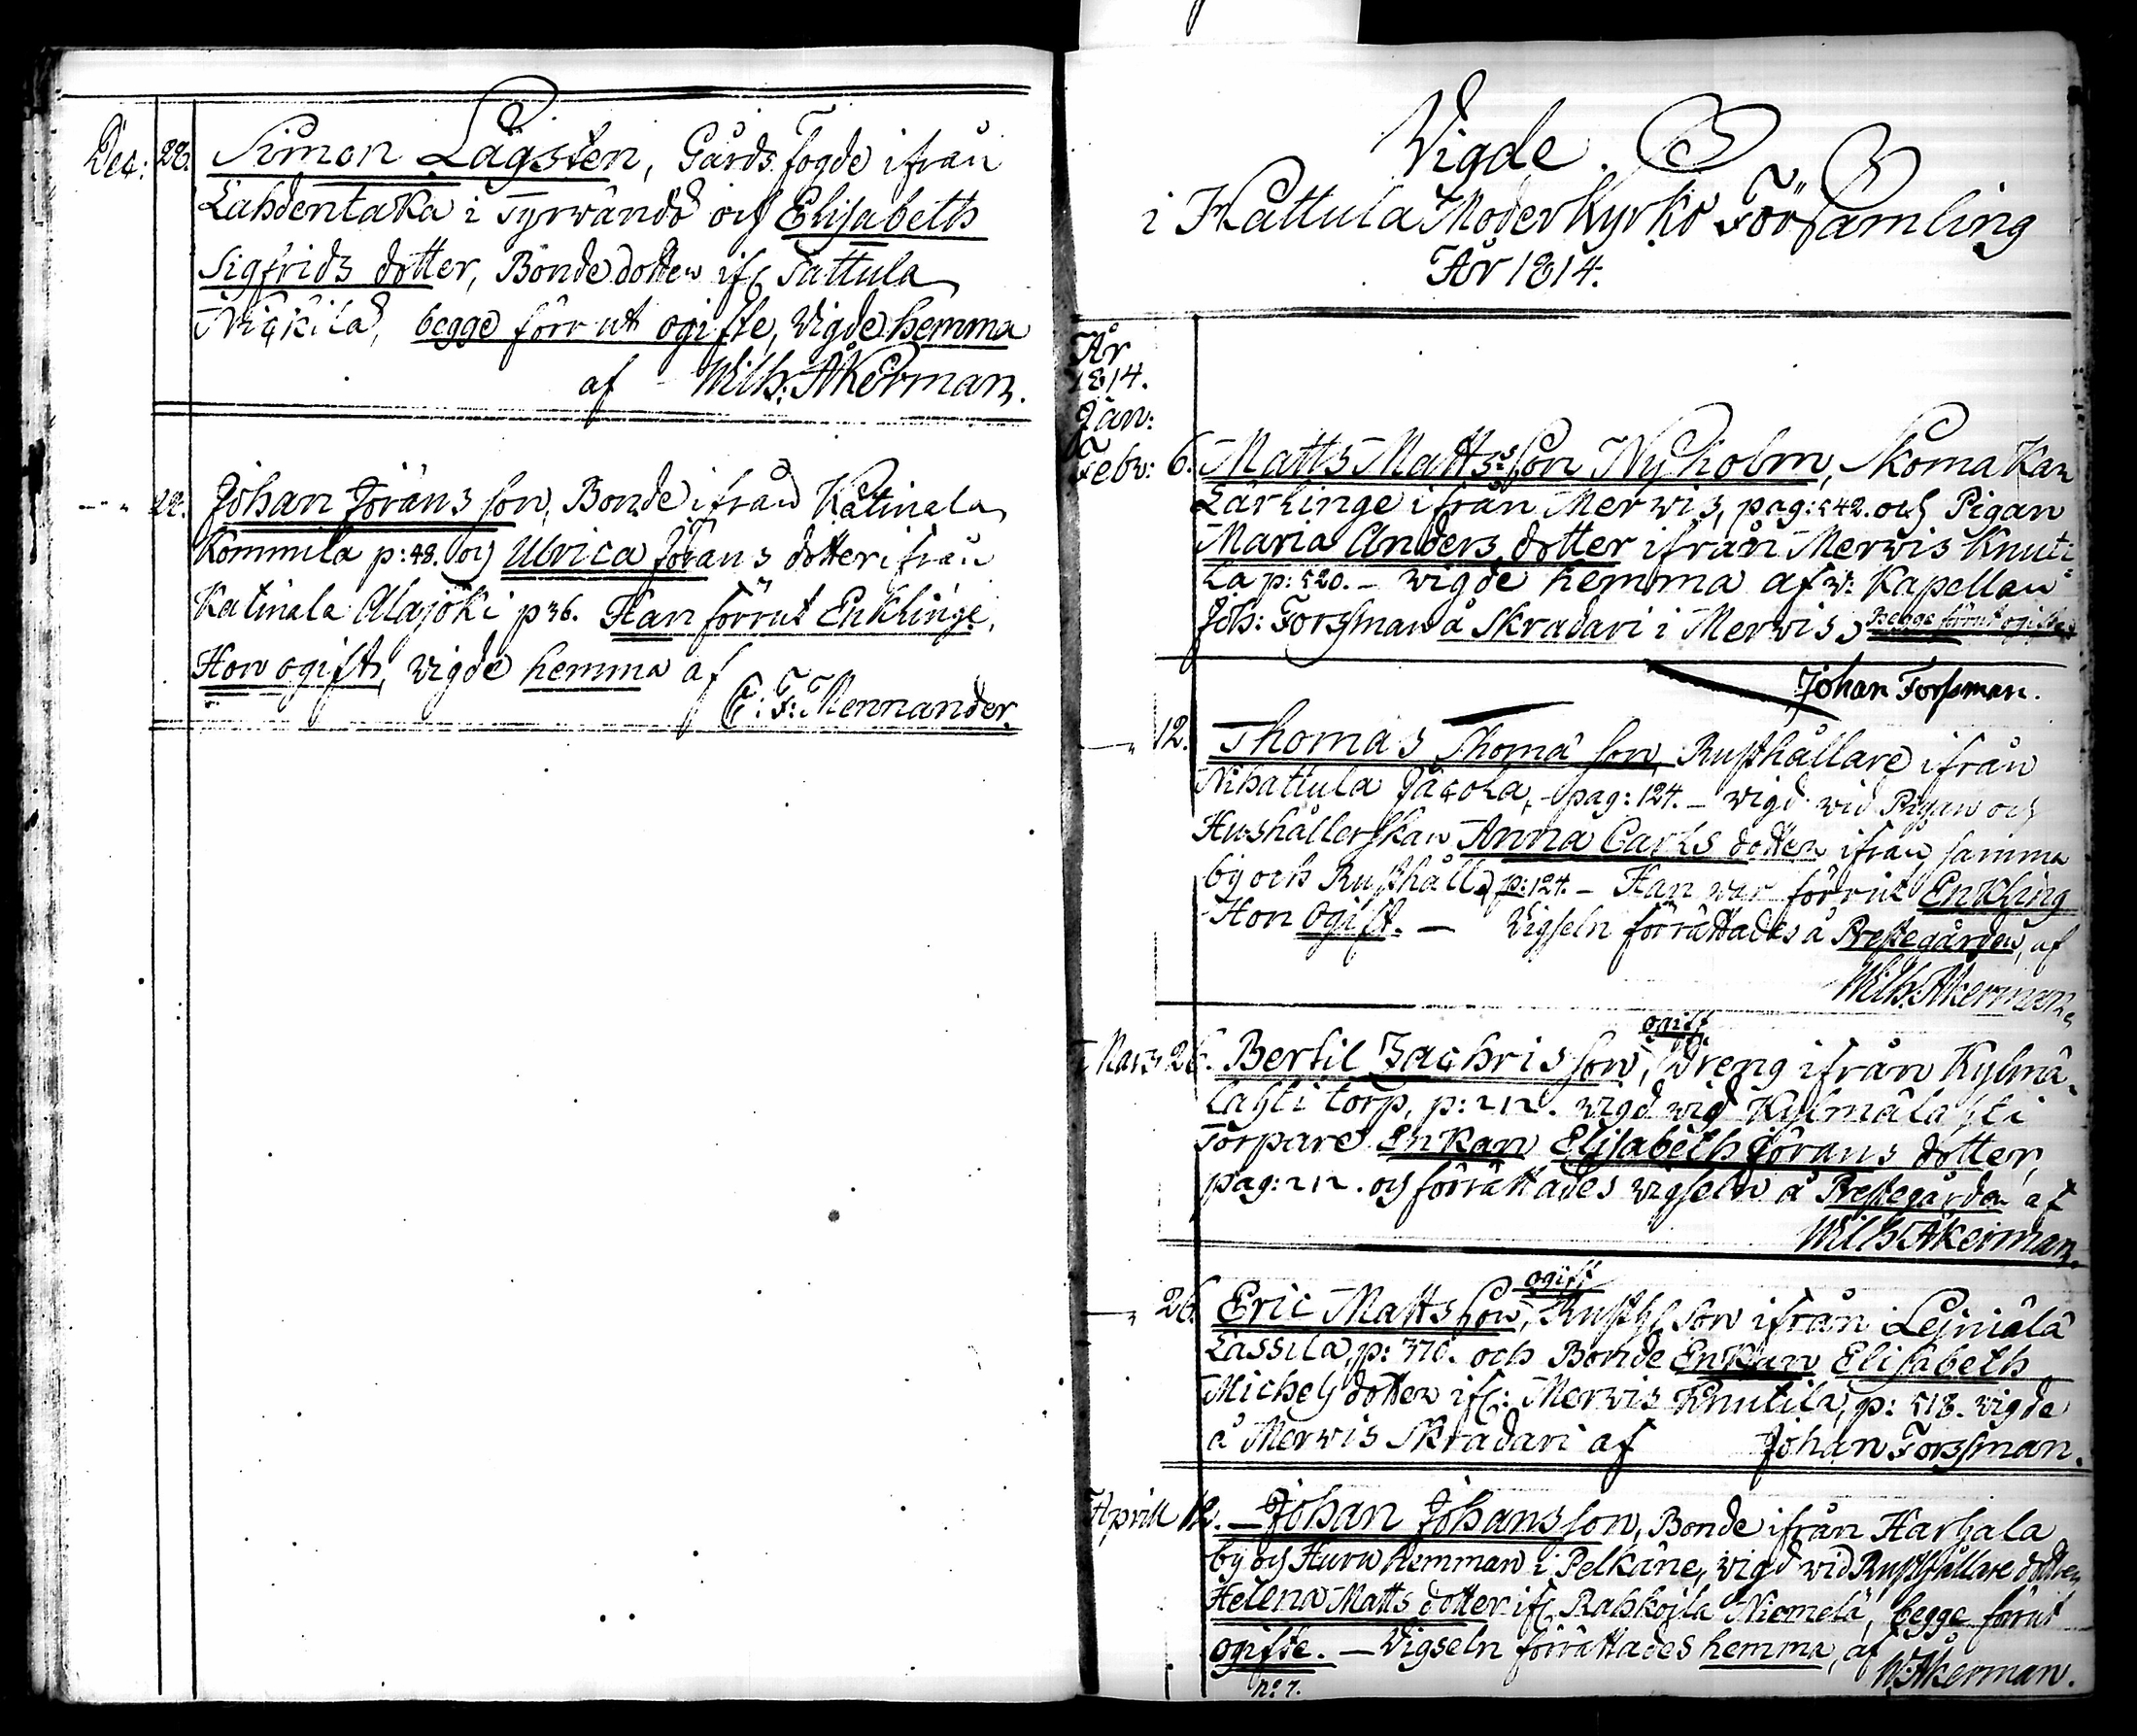 Dec: 28. Simon Lagsten, Gårds Fogde ifrån
Lahdentaka i Tyrwändö och Elisabeth
Sigfrids dotter, Bonde dotter ifr Sattula
Nickilä, begge förrut ogifte, Vigde hemma
af Wilh: Åkerman.
28. Johan Jörans son, Bonde ifrån Katinala
Kömmilä p: 48. och Ulrica Jörans dotter ifrån
Katinala Alajoki p 36. Han förrut Enklinge,
Hon ogift, vigde hemma af
C. F: Mennander.
Vigde.
i Hattula Moderkyrko Församling
År 1814.
År
1814.
Jan:
Febr: 6. Matts Matts: Son Nyholm, Skomakar
Lärlinge ifrån Merwis, pag: 542. och Pigan
Maria Anders dotter ifrån Merwis Knuti
la p: 520. – wigde hemma af v: Kapellan
Joh: Forssman å Skradari i Merwis, Begge förrut ogifte.
Johan Forssman.
12. Thomas Thomæ son, Rusthållare ifrån
Nihattula Jacola, – pag: 124. – vigd wid Pigan och
Hushållerskan Anna Carls dotter ifrån samma
by och Rusthåll p: 124. – Han war förrut Enkling
Hon Ogift. – Vigseln förrättades å Prestegården, af
Wilh: Åkerman
Mars 26. Bertil Zachris son, ogift Dreng ifrån Kylmä-
lahti torp, p: 212. vigd wid Kylmälahti
Torpare Enkan Elisabeth Jörans dotter,
pag: 212. och förrättades vigseln å Prestegården af
Wilh Åkerman.
26. Eric Matts Son, ogift Rusth: Son ifrån Lejniälä
Lassila, p: 370. och Bonde Enkan Elisabeth
Michels dotter ifr: Merwis Knutila, p: 518. vigde
å Merwis Skradari af Johan Forssman.
Aprill 12. – Johan Johans son, Bonde ifrån Harhala
by och Huru hemman i Pelkäne, vigd wid Rusthållare dotter
Helena Matts dotter ifr Rahkoila Niemelä, begge förut
ogifte. – Vigseln förrättades hemma, af W: Åkerman.
No 7.